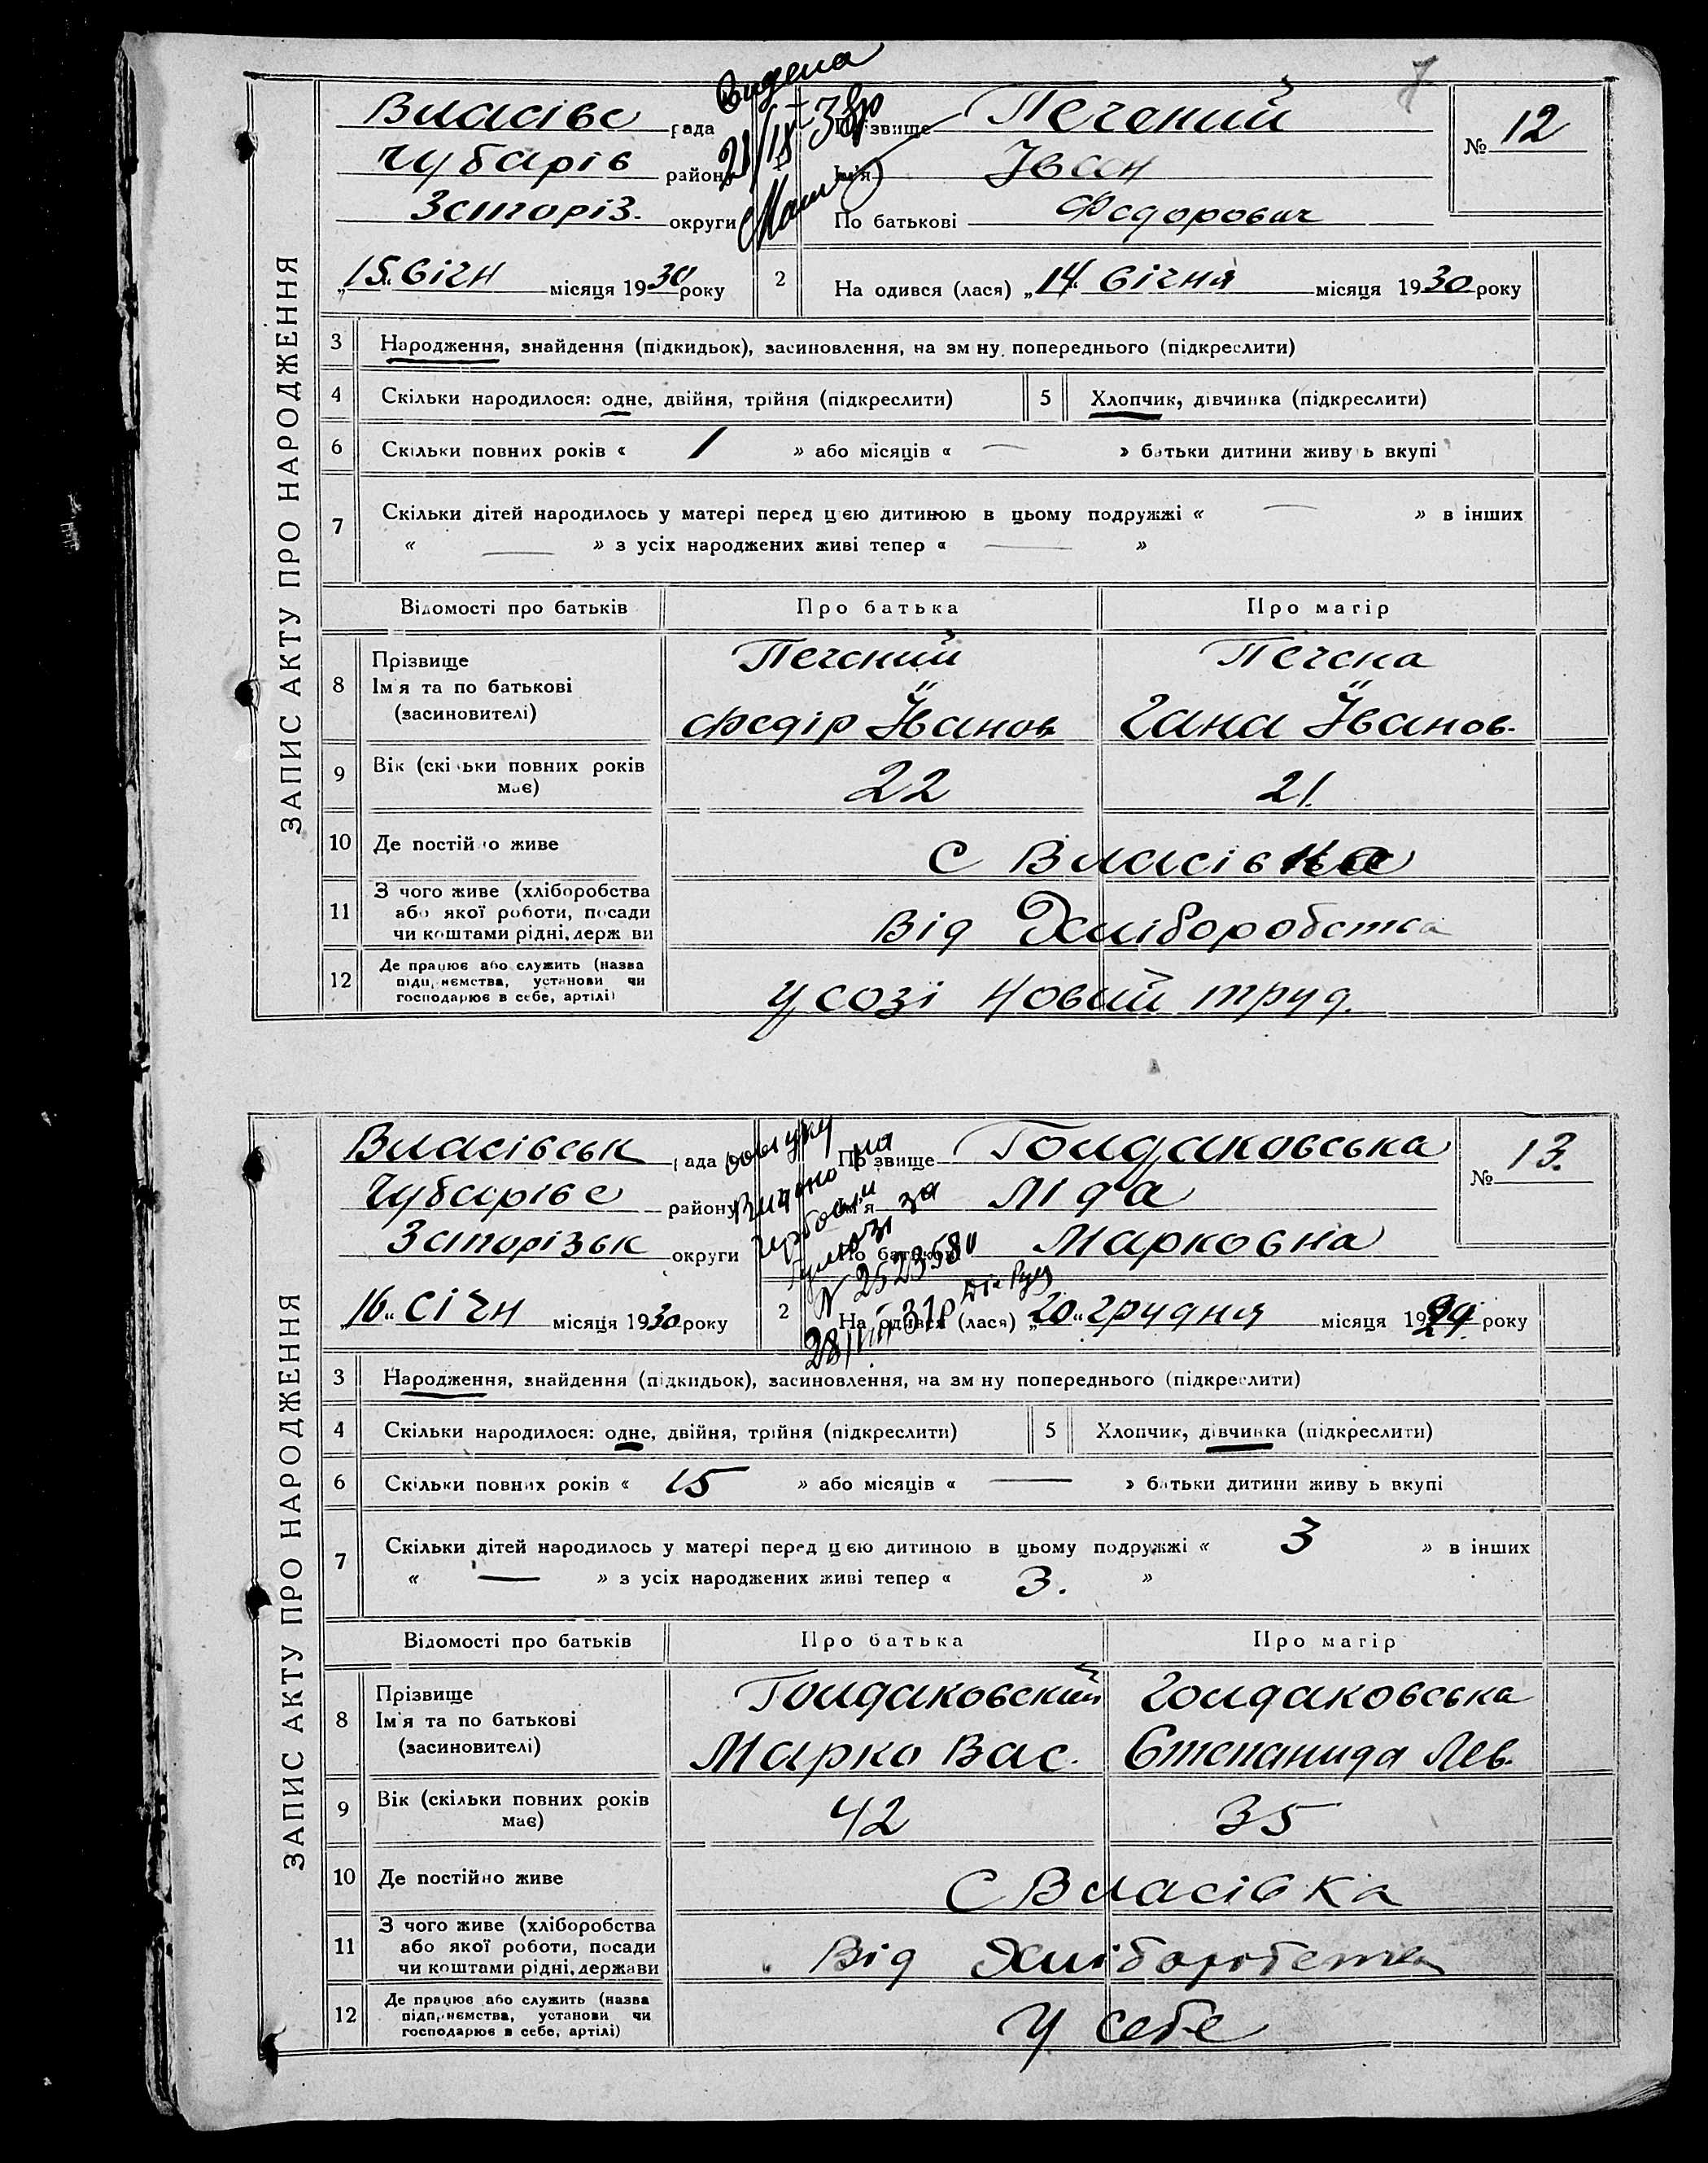 ЗАПИС АКТУ ПРО НАРОДЖЕННЯ
Власівс рада
Чубарів району
Запоріз. округи
Видана
Прізвище Печений
Ім'я Іван
По батькові Федорович
№ 12
„15" Січн місяця 1930 року
2 На одився (лася) „14" січня місяця 1930 року
3 Народження, знайдення (підкидьок), засиновлення, на зм ну попереднього (підкреслити)
4 Скільки народилося: одне, двійня, трійня (підкреслити) 5 Хлопчик, дівчинка (підкреслити)
6 Скільки повних років « 1 » або місяців « — » батьки дитини живу ь вкупі
7 Скільки дітей народилось у матері перед цєю дитиною в цьому подружжі « — » в інших
« — » з усіх народжених живі тепер « — »
Відомості про батьків Про батька Про матір
8 Прізвище
Ім'я та по батькові
(засиновителі)
Печений Печена
Федір Іванов Гана Іванов.
9 Вік (скі ьки повних років
має) 22 21.
10 Де постій о живе с Власівка
11 З чого живе (хліборобства
або якої роботи, посади
чи коштами рідні, держ ви
Від Хліборобства
12 Де працює або служить (назва
підприємства, установи чи
господарює в себе, артілі)
У созі Новий труд.
ЗАПИС АКТУ ПРО НАРОДЖЕННЯ
Власівськ рада
Чубарівс району
Запорізьк округи
Видано на
за
N 2523580
28/VIII-31р
Прізвище Голдаковська
Ім'я Ліда
По батькові Марковна
№ 13.
„16" Січн місяця 1930 року
2 На одився (лася) „20" грудня місяця 1929 року
3 Народження, знайдення (підкидьок), засиновлення, на зм ну попереднього (підкреслити)
4 Скільки народилося: одне, двійня, трійня (підкреслити) 5 Хлопчик, дівчинка (підкреслити)
6 Скільки повних років « 15 » або місяців « — » батьки дитини живу ь вкупі
7 Скільки дітей народилось у матері перед цєю дитиною в цьому подружжі « 3 » в інших
« — » з усіх народжених живі тепер « 3. »
Відомості про батьків Про батька Про матір
8 Прізвище
Ім'я та по батькові
(засиновителі)
Голдаковский Голдаковська
Марко Вас. Степанида Лев.
9 Вік (скільки повних років
має) 42 35
10 Де постійно живе С Власівка
11 З чого живе (хліборобства
або якої роботи, посади
чи коштами рідні, держави
Від Хліборобства
12 Де працює або служить (назва
підприємства, установи чи
господарює в себе, артілі)
У себе